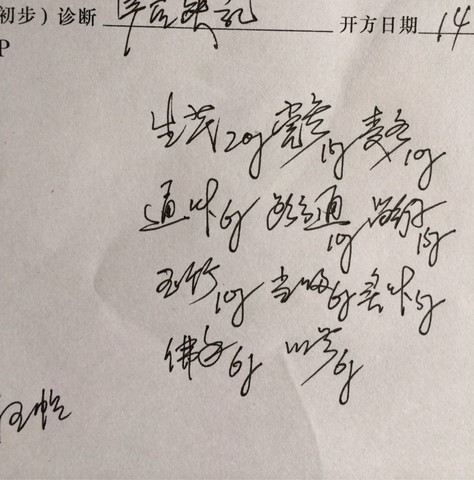 初步）诊断 产后缺乳 开方日期 14
P
生芪20g 党参15g 麦冬10g
通草6g 路路通10g 15g
玉竹10g 当归6g 5g
佛手6g 川芎6g